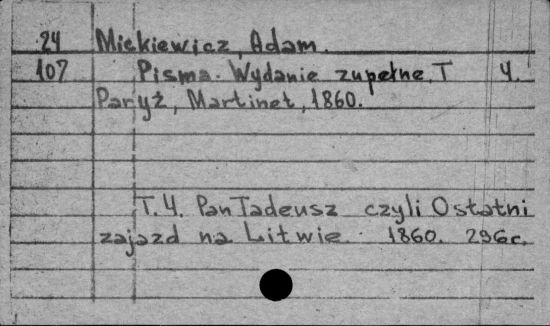 24 Mickiewicz, Adam.
107 Pisma. Wydanie zupełne. T 4.
Paryż, Martinet, 1860.
T. 4. Pan Tadeusz czyli Ostatni
zajazd na Litwie. 1860. 296c.